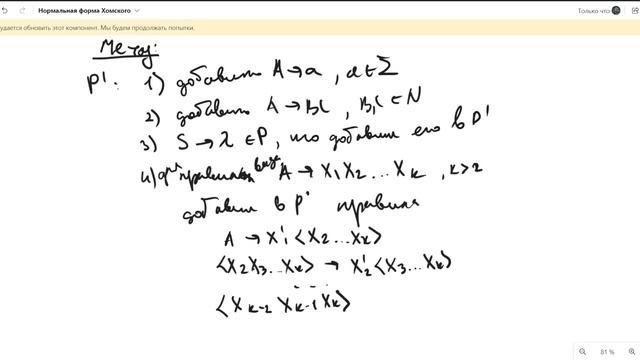 Нормальная форма Хомского
Только что
удается обновить этот компонент. Мы будем продолжать попытки.
Метод:
P': 1) добавить A→a, a∈Σ
2) добавить A→BC, B,C∈N
3) S→λ∈P, то добавим его в P'
4) для правила вида A→X₁X₂...Xₖ, k>2
добавим в P' правила
A→X'₁<X₂...Xₖ>
<X₂X₃...Xₖ>→X'₂<X₃...Xₖ>
...
<Xₖ₋₂Xₖ₋₁Xₖ>
81 %